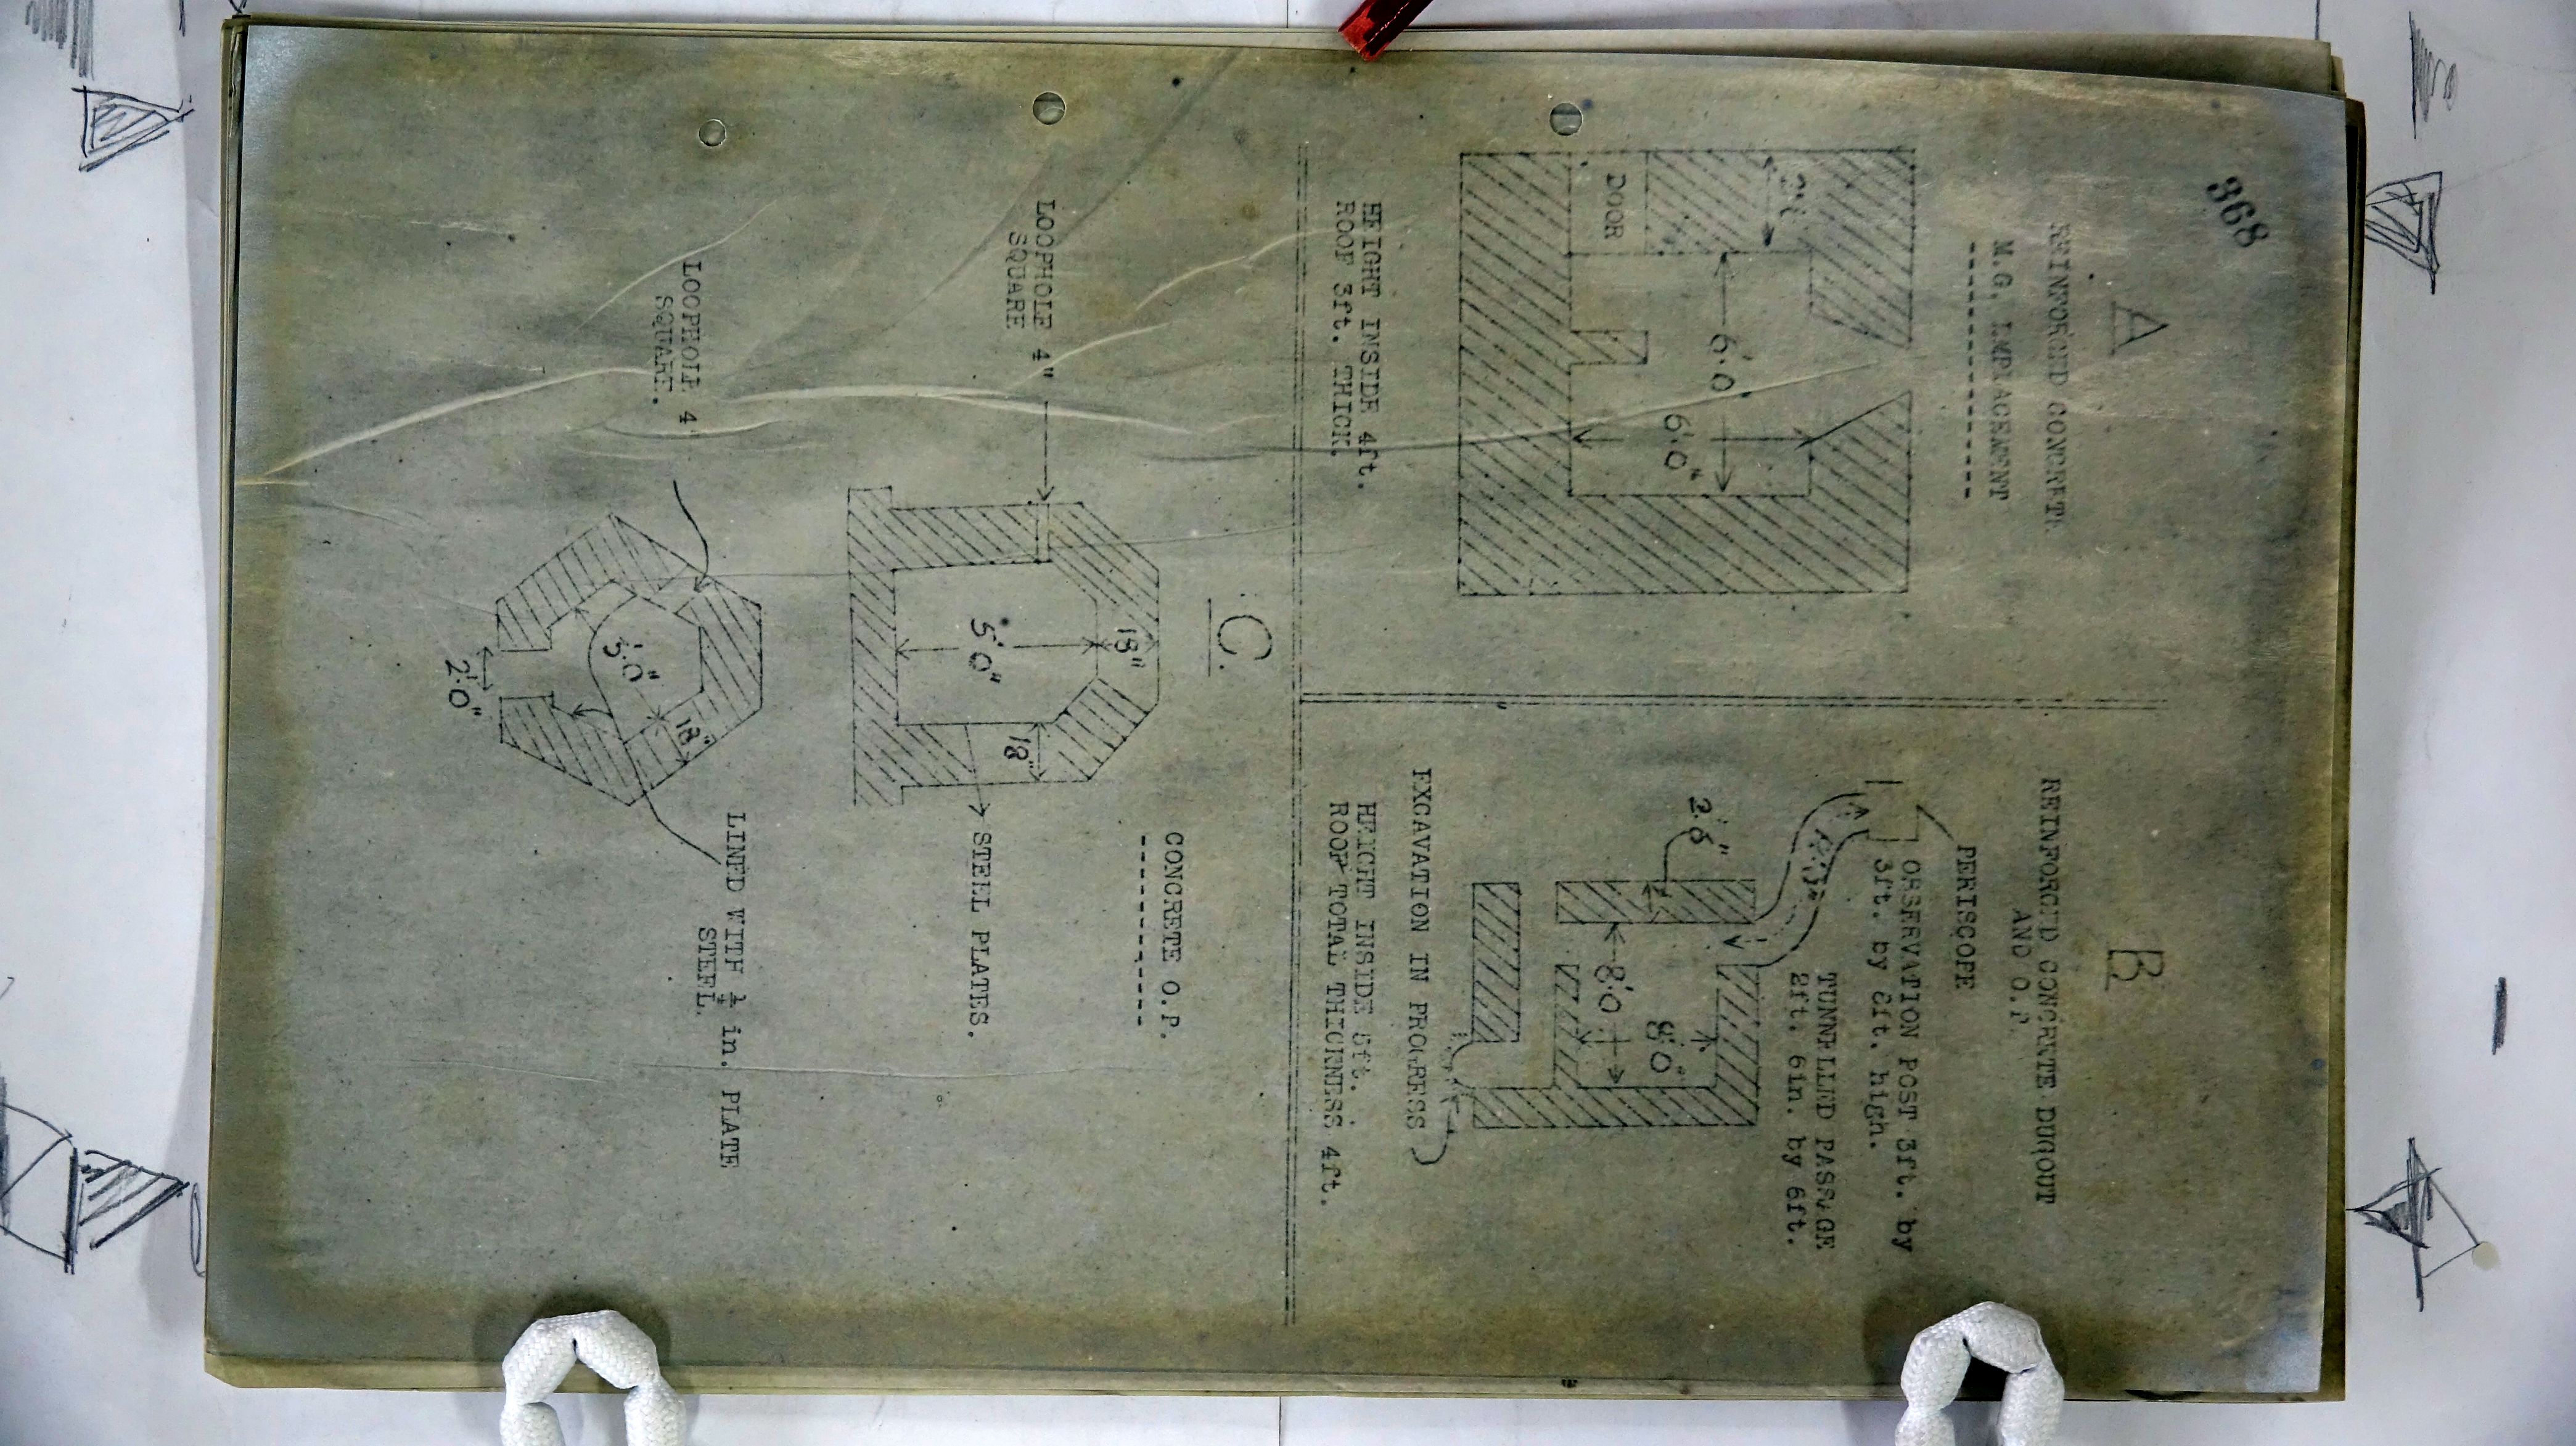 368
A
REINFORCED CONCRETE
M.G. EMPLACEMENT
DOOR
6'.0
6'.0"
HEIGHT INSIDE 4ft.
ROOF 3ft. THICK.
B
REINFORCED CONCRETE DUGOUT
AND O.P.
PERISCOPE
OBSERVATION POST 3ft. by
3ft. by 6ft. high.
TUNNELLED PASSAGE
2ft. 6in. by 6ft.
2'.6"
8'.0
8'.0"
EXCAVATION IN PROGRESS
HEIGHT INSIDE 5ft.
ROOF TOTAL THICKNESS 4ft.
C.
CONCRETE O.P.
18"
5'.0"
18"
LOOPHOLE 4"
SQUARE
STEEL PLATES.
LOOPHOLE 4
SQUARE.
5'.0"
18"
2'.0"
LINED WITH ¼ in. PLATE
STEEL.